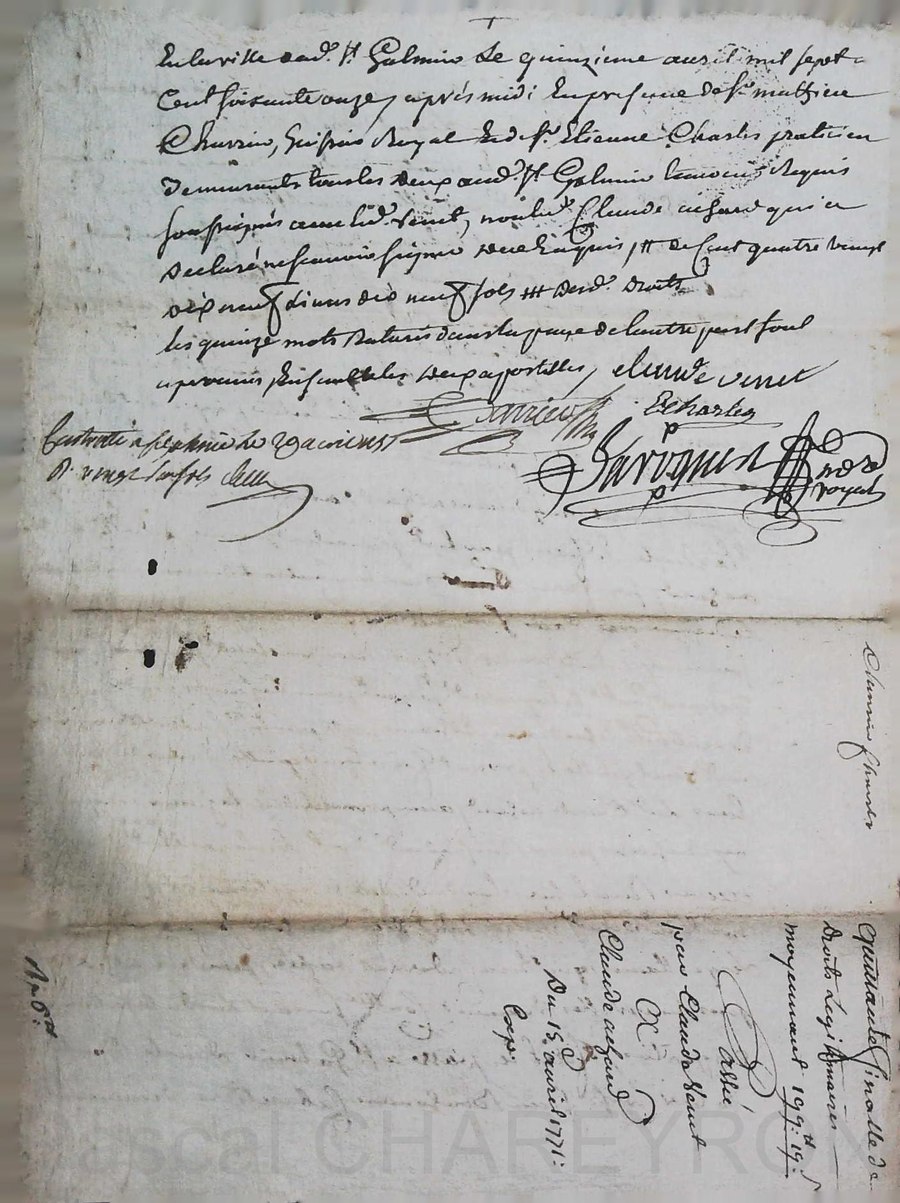 En la ville dud. St Galmier Le quinzieme avril mil sept
Cent soixante onze, après midi En presence de Sr mathieu
huissier Royal Et de Sr Etienne Charles praticien
demeurants tous les deux aud. St Galmier temoins Requis
soussignés avec led. Venet, non led. Claude achard qui a
declaré ne scavoir signer de ce Enquis, # de Cent quatre vingt
dix neuf livres dix neuf sols ### desd. droits
les quinze mots Raturés dans la page de l'autre part sont
approuvés, Ensemble les deux apostilles, claude venet
ECharles
notre
royal
Controllé a st galmier Le
R. vingt six sols
quittance finalle de
Droits Legitimaires
moyennant 199.tt 19.s
Passée
par Claude Venet
A
Claude achard
Du 15e avril 1771:
Exp.
Pascal CHAREYRON